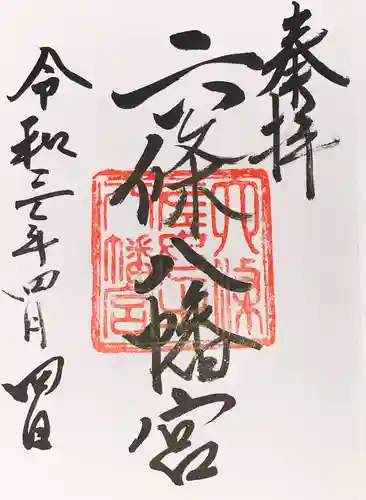 奉拝
六條八幡宮
令和三年四月四日